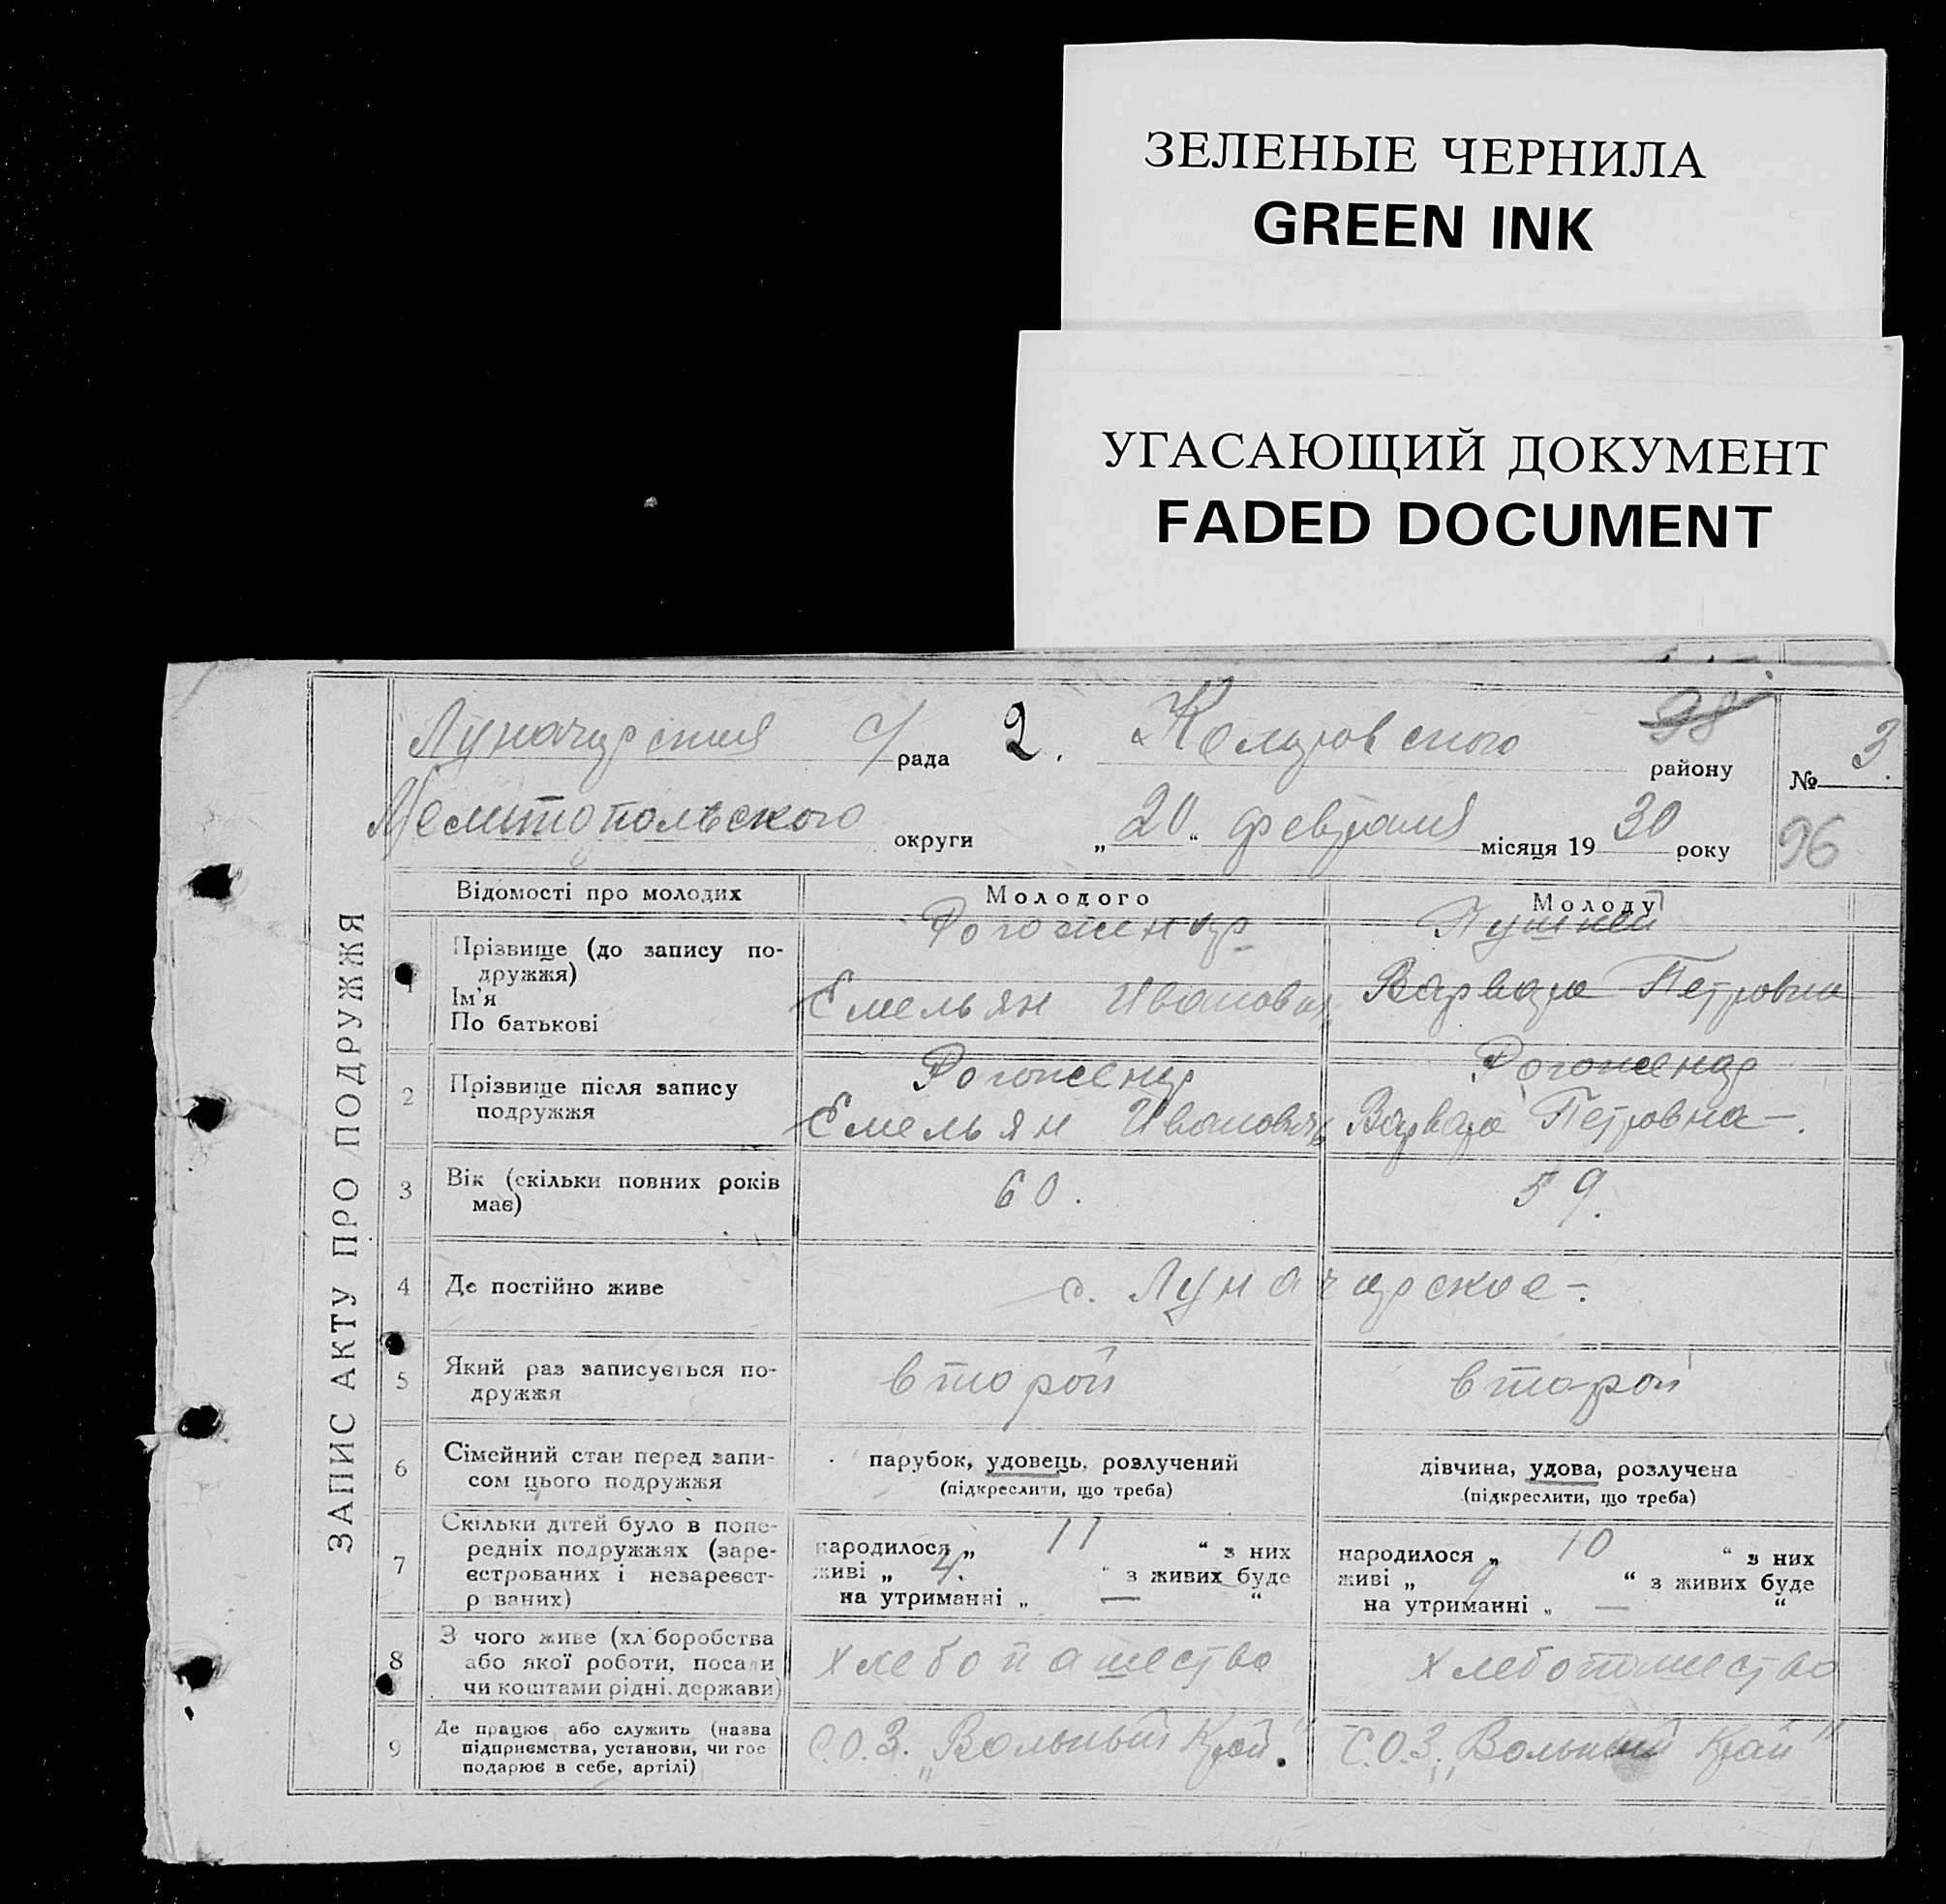 ЗЕЛЕНЫЕ ЧЕРНИЛА
GREEN INK
УГАСАЮЩИЙ ДОКУМЕНТ
FADED DOCUMENT
ЗАПИС АКТУ ПРО ПОДРУЖЖЯ
Луначарская с/рада 2. району 98 № 3.
Мелитопольского округи „20“ февраля місяця 1930 року 96
Відомості про молодих Молодого Молодої
1 Прізвище (до запису по-
дружжя)
Ім'я
По батькові
Рогожинар
Емельян Иванович
Варвара Петровна
2 Прізвище після запису
подружжя
Емельян Иванович
Варвара Петровна -.
3 Вік (скільки повних років
має)
60. 59.
4 Де постійно живе с. Луначарское -.
5 Який раз записується по-
дружжя
второй второй
6 Сімейний стан перед запи-
сом цього подружжя
парубок, удовець, розлучений
(підкреслити, що треба)
дівчина, удова, розлучена
(підкреслити, що треба)
7 Скільки дітей було в попе-
редніх подружжях (заре-
єстрованих і незареєст-
рованих)
народилося „ 11 “ з них
живі „ 4. “ з живих буде
на утриманні „ — “
народилося „ 10 “ з них
живі „ 9 “ з живих буде
на утриманні „ — “
8 З чого живе (хліборобства
або якої роботи, посади
чи коштами рідні, держави)
хлебопашество хлебопашество
9 Де працює або служить (назва
підприємства, установи, чи гос
подарює в себе, артілі)
С.О.З. „Вольный Край." С.О.З. „Вольный Край"